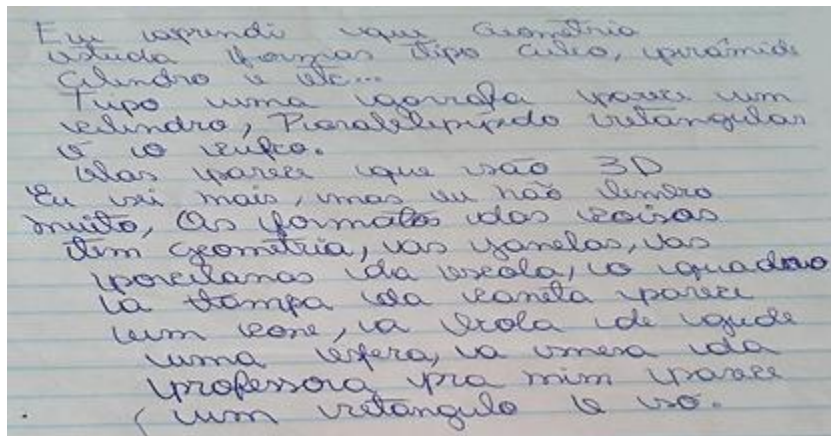 Eu aprendi que Geometria
estuda formas tipo cubo, pirâmide
Cilindro e etc...
Tupo uma garrafa parece um
cilindro, Paralelipípedo retangular
é o cubo.
Elas parece que são 3D
Eu sei mais, mas eu não lembro
muito, As formatos das coisas
tem geometria, as janelas, as
porcelanas da escola, o quadro
a tampa da caneta parece
um cone, a bola de gude
uma esfera, a mesa da
professora pra mim parece
um retangulo e só.